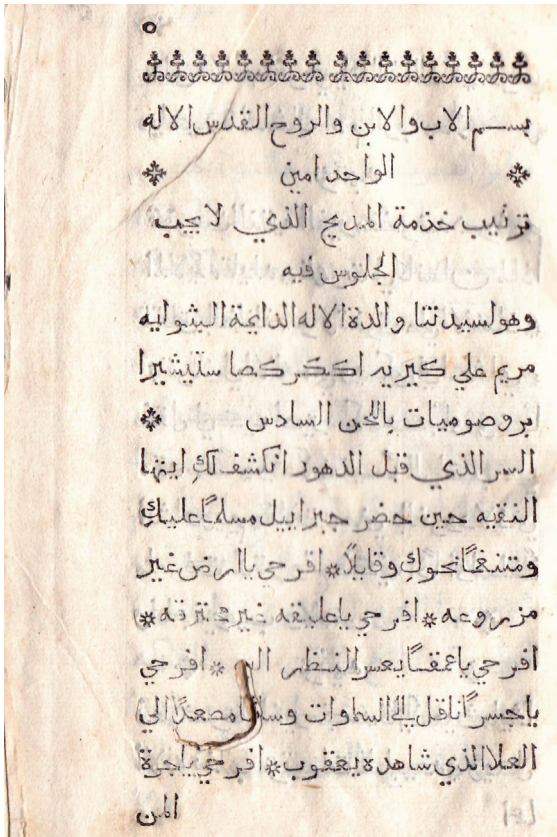 ٥
بسم الاب والابن والروح القدس الاله
الواحد امين
ترتيب خذمة المديح الذي لا يجب
الجلوس فيه
وهو لسيدتنا والدة الاله الدايمة البثوليه
مريم علي كيريه اككركصا ستيشيرا
بروصوميات باللحن السادس
السر الذي قبل الدهور انكشف لكِ ايتها
النقيه حين حضر جبراييل مسلمًا عليكِ
ومتنغمًا نحوكِ وقايلاً * افرحي ياارض غير
مزروعه * افرحي ياعليقه غير محترقه *
افرحي ياعمقًا يعسر النظر * افرحي
ياجسرًا ناقل الي السماوات وسلمًا مصعدًا الي
العلا الذي شاهده يعقوب * افرحي ياجرة
المن